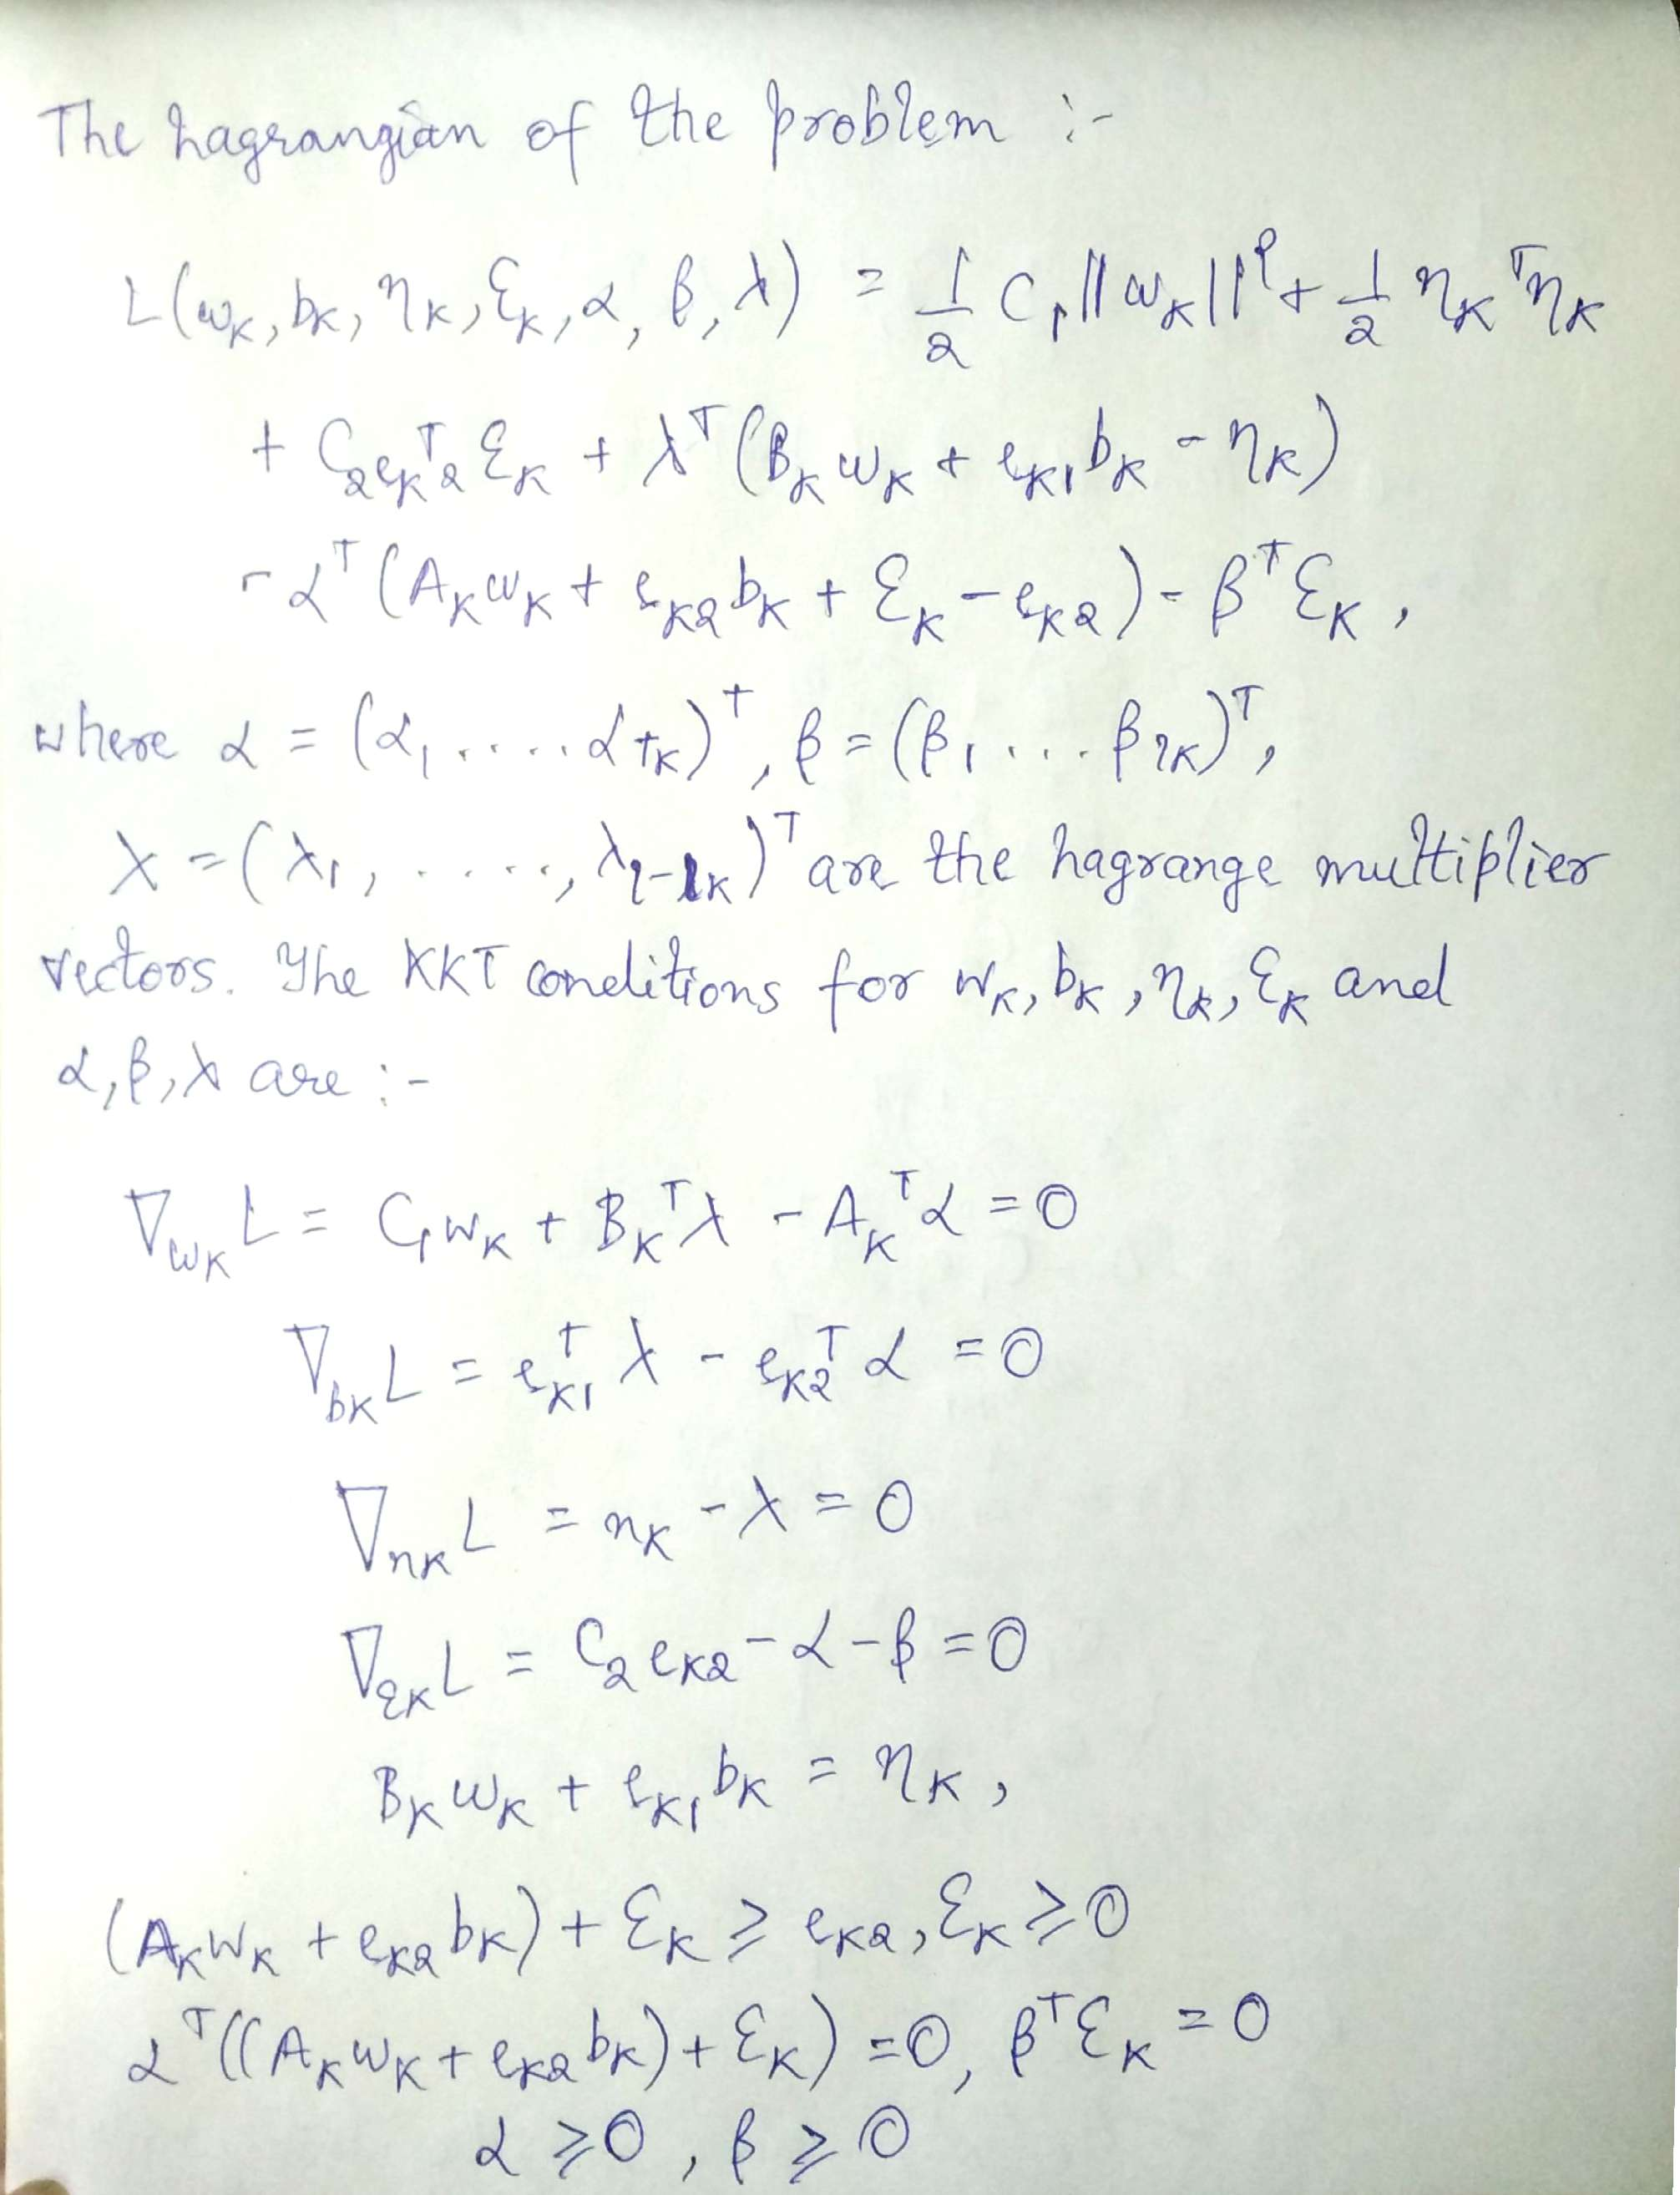 The Lagrangian of the problem :-
L(w_K, b_K, η_K, ξ_K, α, β, λ) = 1/2 C_1 ||w_K||^2 + 1/2 η_K^T η_K
+ C_2 e_K2^T ξ_K + λ^T (B_K w_K + e_K1 b_K - η_K)
- α^T (A_K w_K + e_K2 b_K + ξ_K - e_K2) - β^T ξ_K ,
where α = (α_1 ..... α_tK)^T, β = (β_1 ... β_lK)^T,
λ = (λ_1, ....., λ_l-lK)^T are the Lagrange multiplier
vectors. The KKT conditions for w_K, b_K, η_K, ξ_K and
α, β, λ are :-
∇_wK L = C_1 w_K + B_K^T λ - A_K^T α = 0
∇_bK L = e_K1^T λ - e_K2^T α = 0
∇_ηK L = η_K - λ = 0
∇_ξK L = C_2 e_K2 - α - β = 0
B_K w_K + e_K1 b_K = η_K ,
(A_K w_K + e_K2 b_K) + ξ_K ≥ e_K2, ξ_K ≥ 0
α^T ((A_K w_K + e_K2 b_K) + ξ_K) = 0, β^T ξ_K = 0
α ≥ 0 , β ≥ 0